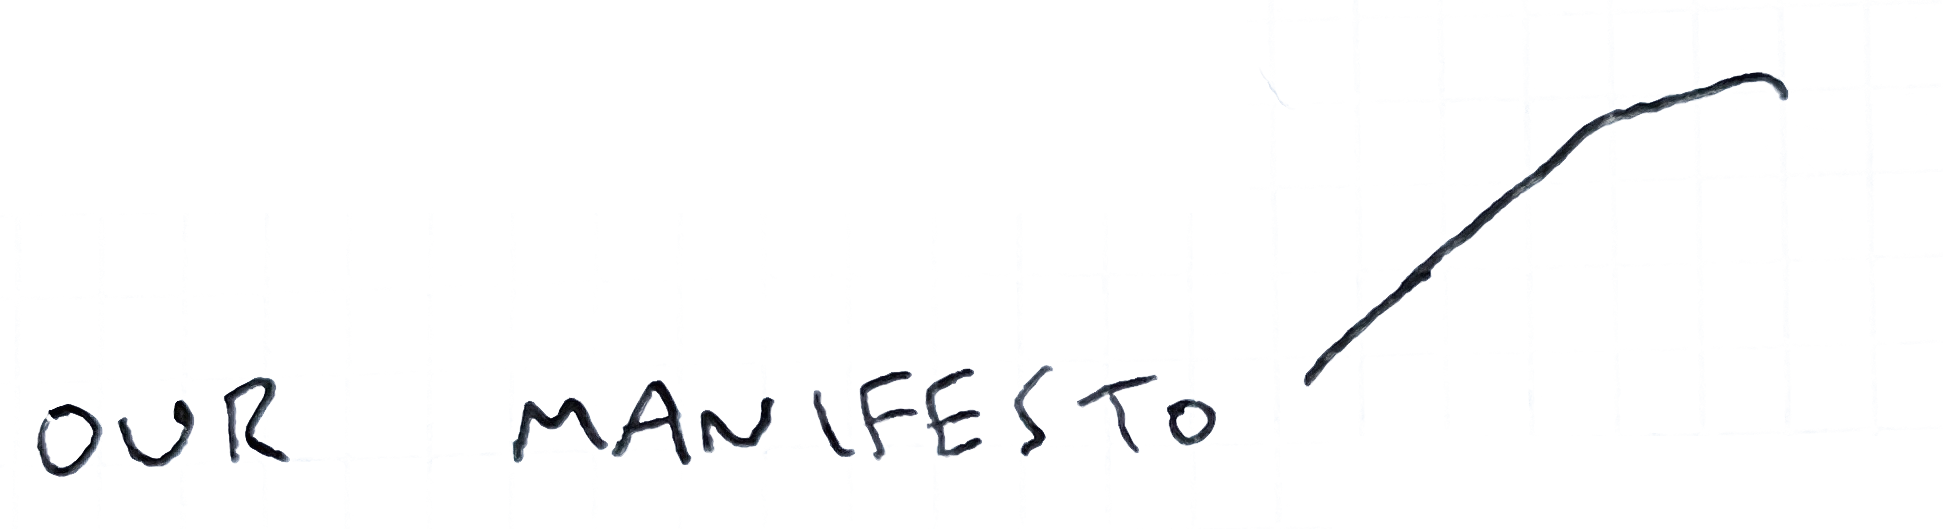 OUR MANIFESTO